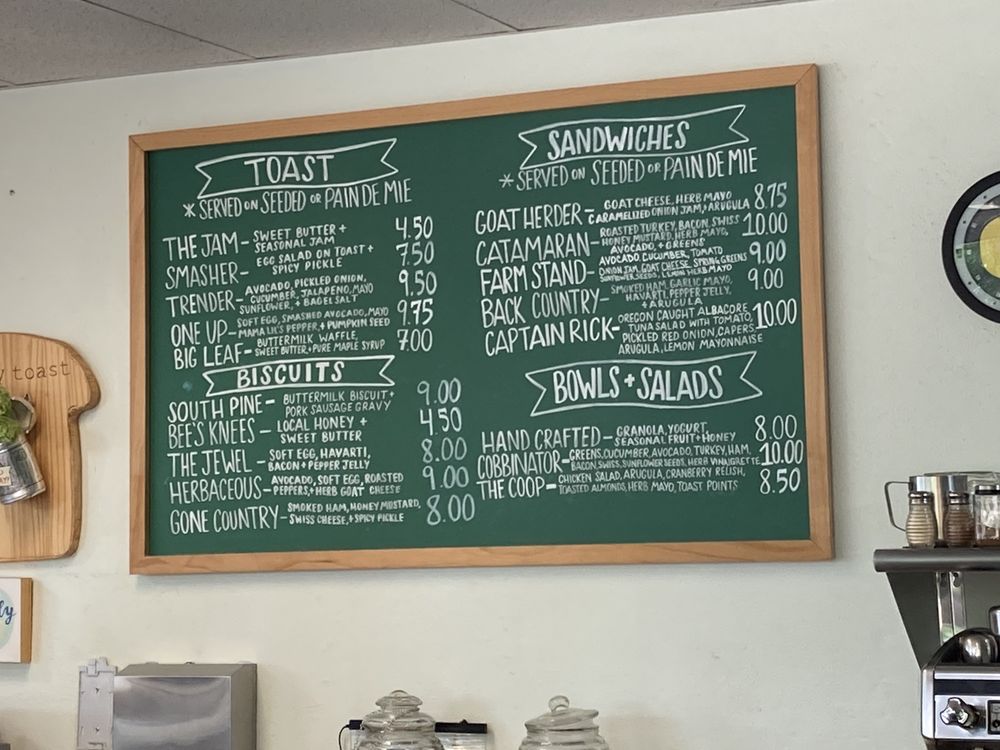 TOAST
*SERVED ON SEEDED OR PAIN DE MIE
THE JAM- SWEET BUTTER + 4.50
SEASONAL JAM
SMASHER- EGG SALAD ON TOAST + 7.50
SPICY PICKLE
TRENDER- AVOCADO, PICKLED ONION, 9.50
CUCUMBER, JALAPENO, MAYO
SUNFLOWER, + BAGEL SALT
ONE UP- SOFT EGG, SMASHED AVOCADO, MAYO 9.75
MAMA LIL'S PEPPER, + PUMPKIN SEED
BIG LEAF- BUTTERMILK WAFFLE, 7.00
SWEET BUTTER, + PURE MAPLE SYRUP
BISCUITS
SOUTH PINE- BUTTERMILK BISCUIT + 9.00
PORK SAUSAGE GRAVY
BEE'S KNEES - LOCAL HONEY + 4.50
SWEET BUTTER
THE JEWEL- SOFT EGG, HAVARTI, 8.00
BACON + PEPPER JELLY
HERBACEOUS- AVOCADO, SOFT EGG, ROASTED 9.00
PEPPERS, + HERB GOAT CHEESE
GONE COUNTRY- SMOKED HAM, HONEY MUSTARD, 8.00
SWISS CHEESE, + SPICY PICKLE
SANDWICHES
*SERVED ON SEEDED OR PAIN DE MIE
GOAT HERDER- GOAT CHEESE, HERB MAYO 8.75
CARAMELIZED ONION JAM, + ARUGULA
CATAMARAN- ROASTED TURKEY, BACON, SWISS 10.00
HONEY MUSTARD, HERB MAYO,
AVOCADO, + GREENS
FARM STAND- AVOCADO, CUCUMBER, TOMATO 9.00
ONION JAM, GOAT CHEESE, SPRING GREENS
SUNFLOWER SEEDS, LEMON HERB MAYO
BACK COUNTRY- SMOKED HAM, GARLIC MAYO, 9.00
HAVARTI, PEPPER JELLY,
+ ARUGULA
CAPTAIN RICK- OREGON CAUGHT ALBACORE 10.00
TUNA SALAD WITH TOMATO,
PICKLED RED ONION, CAPERS
ARUGULA, LEMON MAYONNAISE
BOWLS + SALADS
HAND CRAFTED- GRANOLA, YOGURT, 8.00
SEASONAL FRUIT + HONEY
COBBINATOR- GREENS, CUCUMBER, AVOCADO, TURKEY, HAM, 10.00
BACON, SWISS, SUNFLOWER SEEDS, HERB VINAIGRETTE
THE COOP- CHICKEN SALAD, ARUGULA, CRANBERRY RELISH, 8.50
TOASTED ALMONDS, HERB MAYO, TOAST POINTS
toast